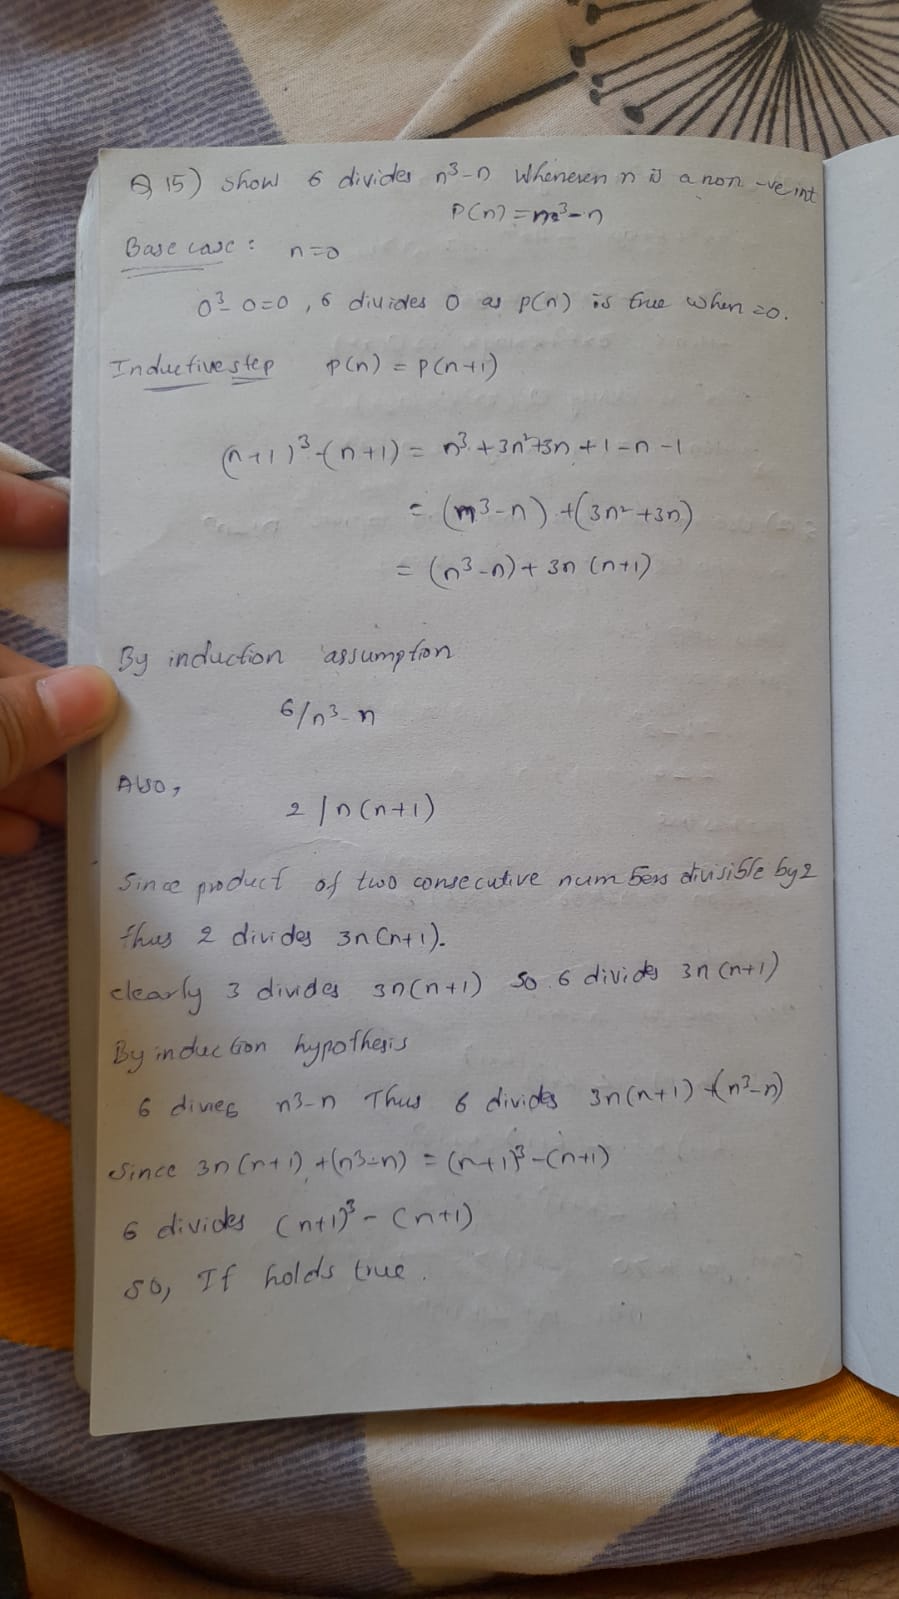 Q 15) show 6 divides n³-n Wheneven n is a non -ve int
P(n) = n³-n
Base case : n=0
0³- 0=0 , 6 divides 0 as p(n) is true when =0.
Inductive step p(n) = p(n+1)
(n+1)³-(n+1) = n³+3n²+3n+1-n-1
= (n³-n)+(3n²+3n)
= (n³-n)+ 3n (n+1)
By induction assumption
6/n³-n
Also,
2 | n(n+1)
Since product of two consecutive numbers divisible by 2
thus 2 divides 3n(n+1).
clearly 3 divides 3n(n+1) so 6 divides 3n(n+1)
By induction hypothesis
6 divies n³-n Thus 6 divides 3n(n+1)+(n³-n)
Since 3n(n+1)+(n³-n) = (n+1)³-(n+1)
6 divides (n+1)³-(n+1)
so, If holds true.